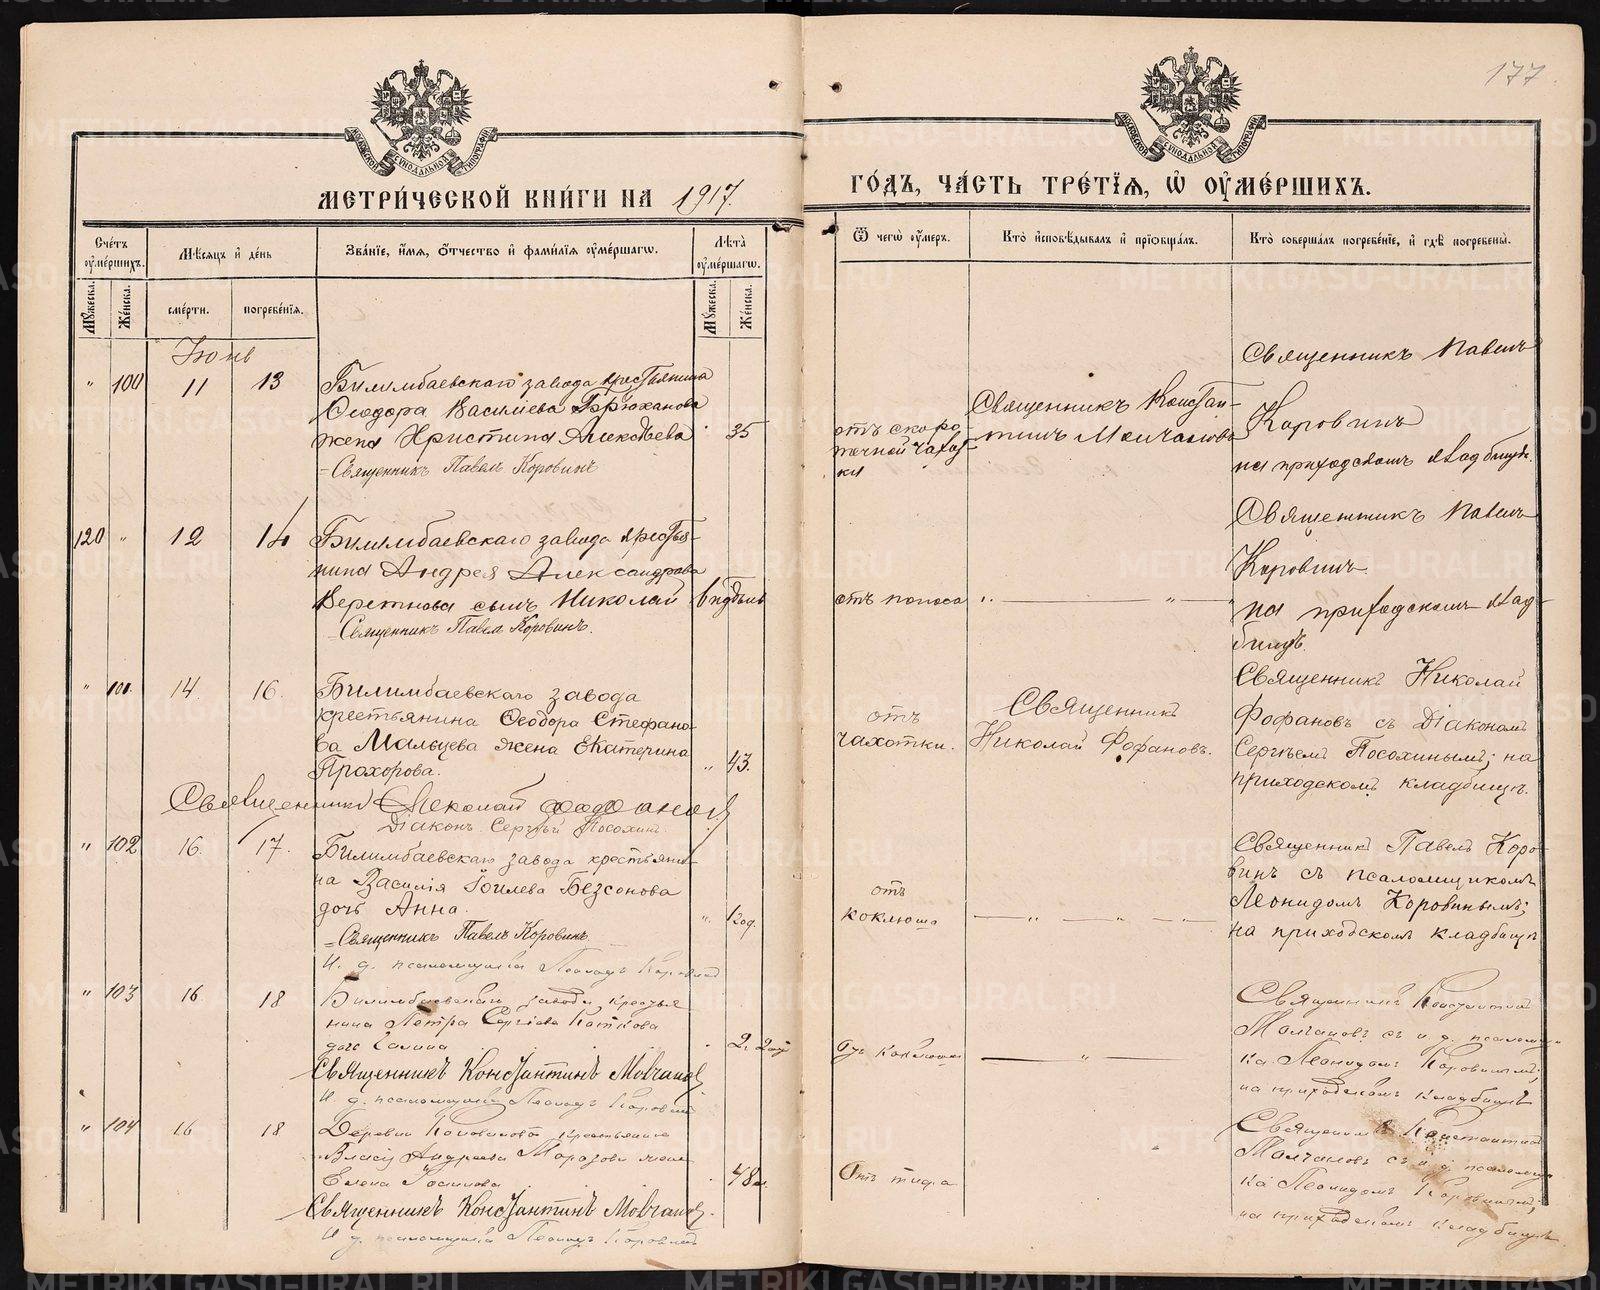 177
МЕТРИ́ЧЕСКОЙ КНИ́ГИ НА 1917.
ГО́ДЪ, ЧА́СТЬ ТРЕ́ТІѦ, Ѡ҆ ОУ҆МЕ́РШИХЪ.
Сче́тъ оу҆ме́ршихъ.
Мѣ́сяцъ и҆ де́нь
Зва́нїе, и҆́мѧ, ѻ҆́тчество и҆ фамилїѧ оу҆ме́ршагѡ.
Лѣ́та оу҆ме́ршагѡ.
Ѿ чегѡ̀ оу҆́меръ.
Кто̀ и҆сповѣ́дывалъ и҆ прїѡбща́лъ.
Кто̀ соверша́лъ погребе́нїе, и҆ гдѣ̀ погребены̀.
Мꙋ́жеска.
Же́нска.
сме́рти.
погребе́нїѧ.
Мꙋ́жеска.
Же́нска.
Іюнь
" 100 11 13
Билимбаевскаго завода крестьянина
Ѳеодора Василіева Брюханова
жена Христина Алексѣева
35
Священникъ Павелъ Коровинъ
отъ скоро-
течной чахот-
ки
Священникъ Констан-
тинъ Молчановъ
Священникъ Павелъ
Коровинъ
на приходскомъ кладбищѣ.
120 " 12 14
Билимбаевскаго завода крестья-
нина Андрея Александрова
сынъ Николай
Священникъ Павелъ Коровинъ.
отъ поноса
Священникъ Павелъ
Коровинъ
на приходскомъ клад-
бищѣ.
" 101. 14. 16.
Билимбаевскаго завода
крестьянина Ѳеодора Стефано-
ва Мальцева жена Екатерина
Прохорова.
" 43.
Священникъ Николай Фофановъ
Діаконъ Сергѣй Посохинъ
отъ
чахотки.
Священникъ
Николай Фофановъ.
Священникъ Николай
Фофановъ съ Діакономъ
Сергѣемъ Посохинымъ; на
приходскомъ кладбищѣ.
" 102 16. 17.
Билимбаевскаго завода крестьяни-
на Василія Іоилева Безсонова
дочь Анна.
" 1 год.
Священникъ Павелъ Коровинъ
И. д. псаломщика Леонидъ Коровинъ
отъ
коклюша
Священникъ Павелъ Коро-
винъ съ псаломщикомъ
Леонидомъ Коровинымъ;
на приходскомъ кладбищѣ
" 103 16 18
Билимбаевскаго завода крестья
нина Петра Сергіева Каткова
дочь Галина
Священникъ Константинъ Молчановъ
И. д. псаломщика Леонидъ Коровинъ
Отъ коклюша
Священникъ Константинъ
Молчановъ съ и. д. псаломщи
ка Леонидомъ Коровинымъ;
на приходскомъ кладбищѣ
" 104 16 18
Деревни Коновалова крестьянина
Власія Андреева Морозова жена
Елена
48 л.
Священникъ Константинъ Молчановъ.
И д. псаломщика Леонидъ Коровинъ
Отъ тифа
Священникъ Константинъ
Молчановъ съ и. д. псаломщи
ка Леонидомъ Коровинымъ;
на приходскомъ кладбищѣ.
METRIKI.GASO-URAL.RU